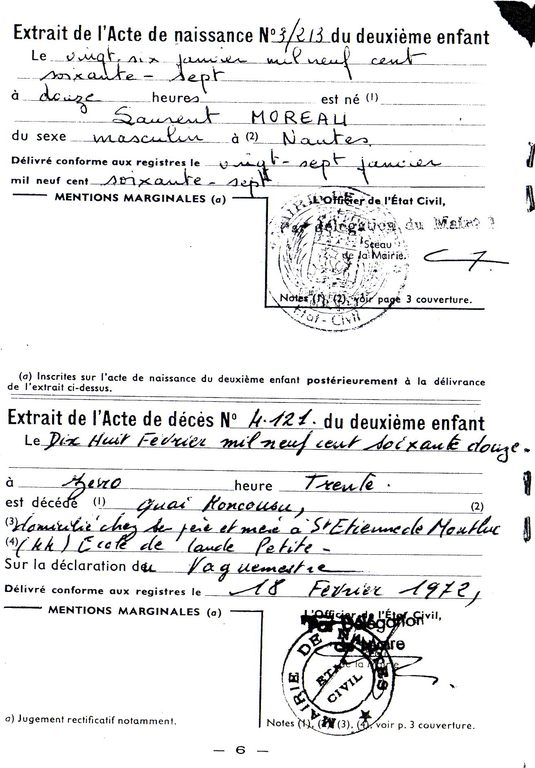 Extrait de l'Acte de naissance N° 3/213 du deuxième enfant
Le vingt-six janvier mil neuf cent
soixante-sept
à douze heures est né (1)
Laurent MOREAU
du sexe masculin à (2) Nantes
Délivré conforme aux registres le vingt-sept janvier
mil neuf cent soixante-sept
MENTIONS MARGINALES (a)
L'Officier de l'État Civil,
délégation du Maire
Sceau
de la Mairie.
Notes (1), (2), voir page 3 couverture.
Etat-Civil
(a) Inscrites sur l'acte de naissance du deuxième enfant postérieurement à la délivrance
de l'extrait ci-dessus.
Extrait de l'Acte de décès N° 4.121. du deuxième enfant
Le Dix Huit Février mil neuf cent soixante douze.
à zero heure Trente.
est décédé (1) quai Moncousu, (2)
(3) domicilié chez se père et mère à St Etienne de Montluc
(4) Ecole de Lande Petite -
Sur la déclaration du Vaguemestre
Délivré conforme aux registres le 18 Février 1972,
MENTIONS MARGINALES (a)
L'Officier de l'État Civil,
Délégation
MAIRIE DE NANTES
ETAT
CIVIL
a) Jugement rectificatif notamment.
Notes (1), (2), (3), (4), voir p. 3 couverture.
— 6 —